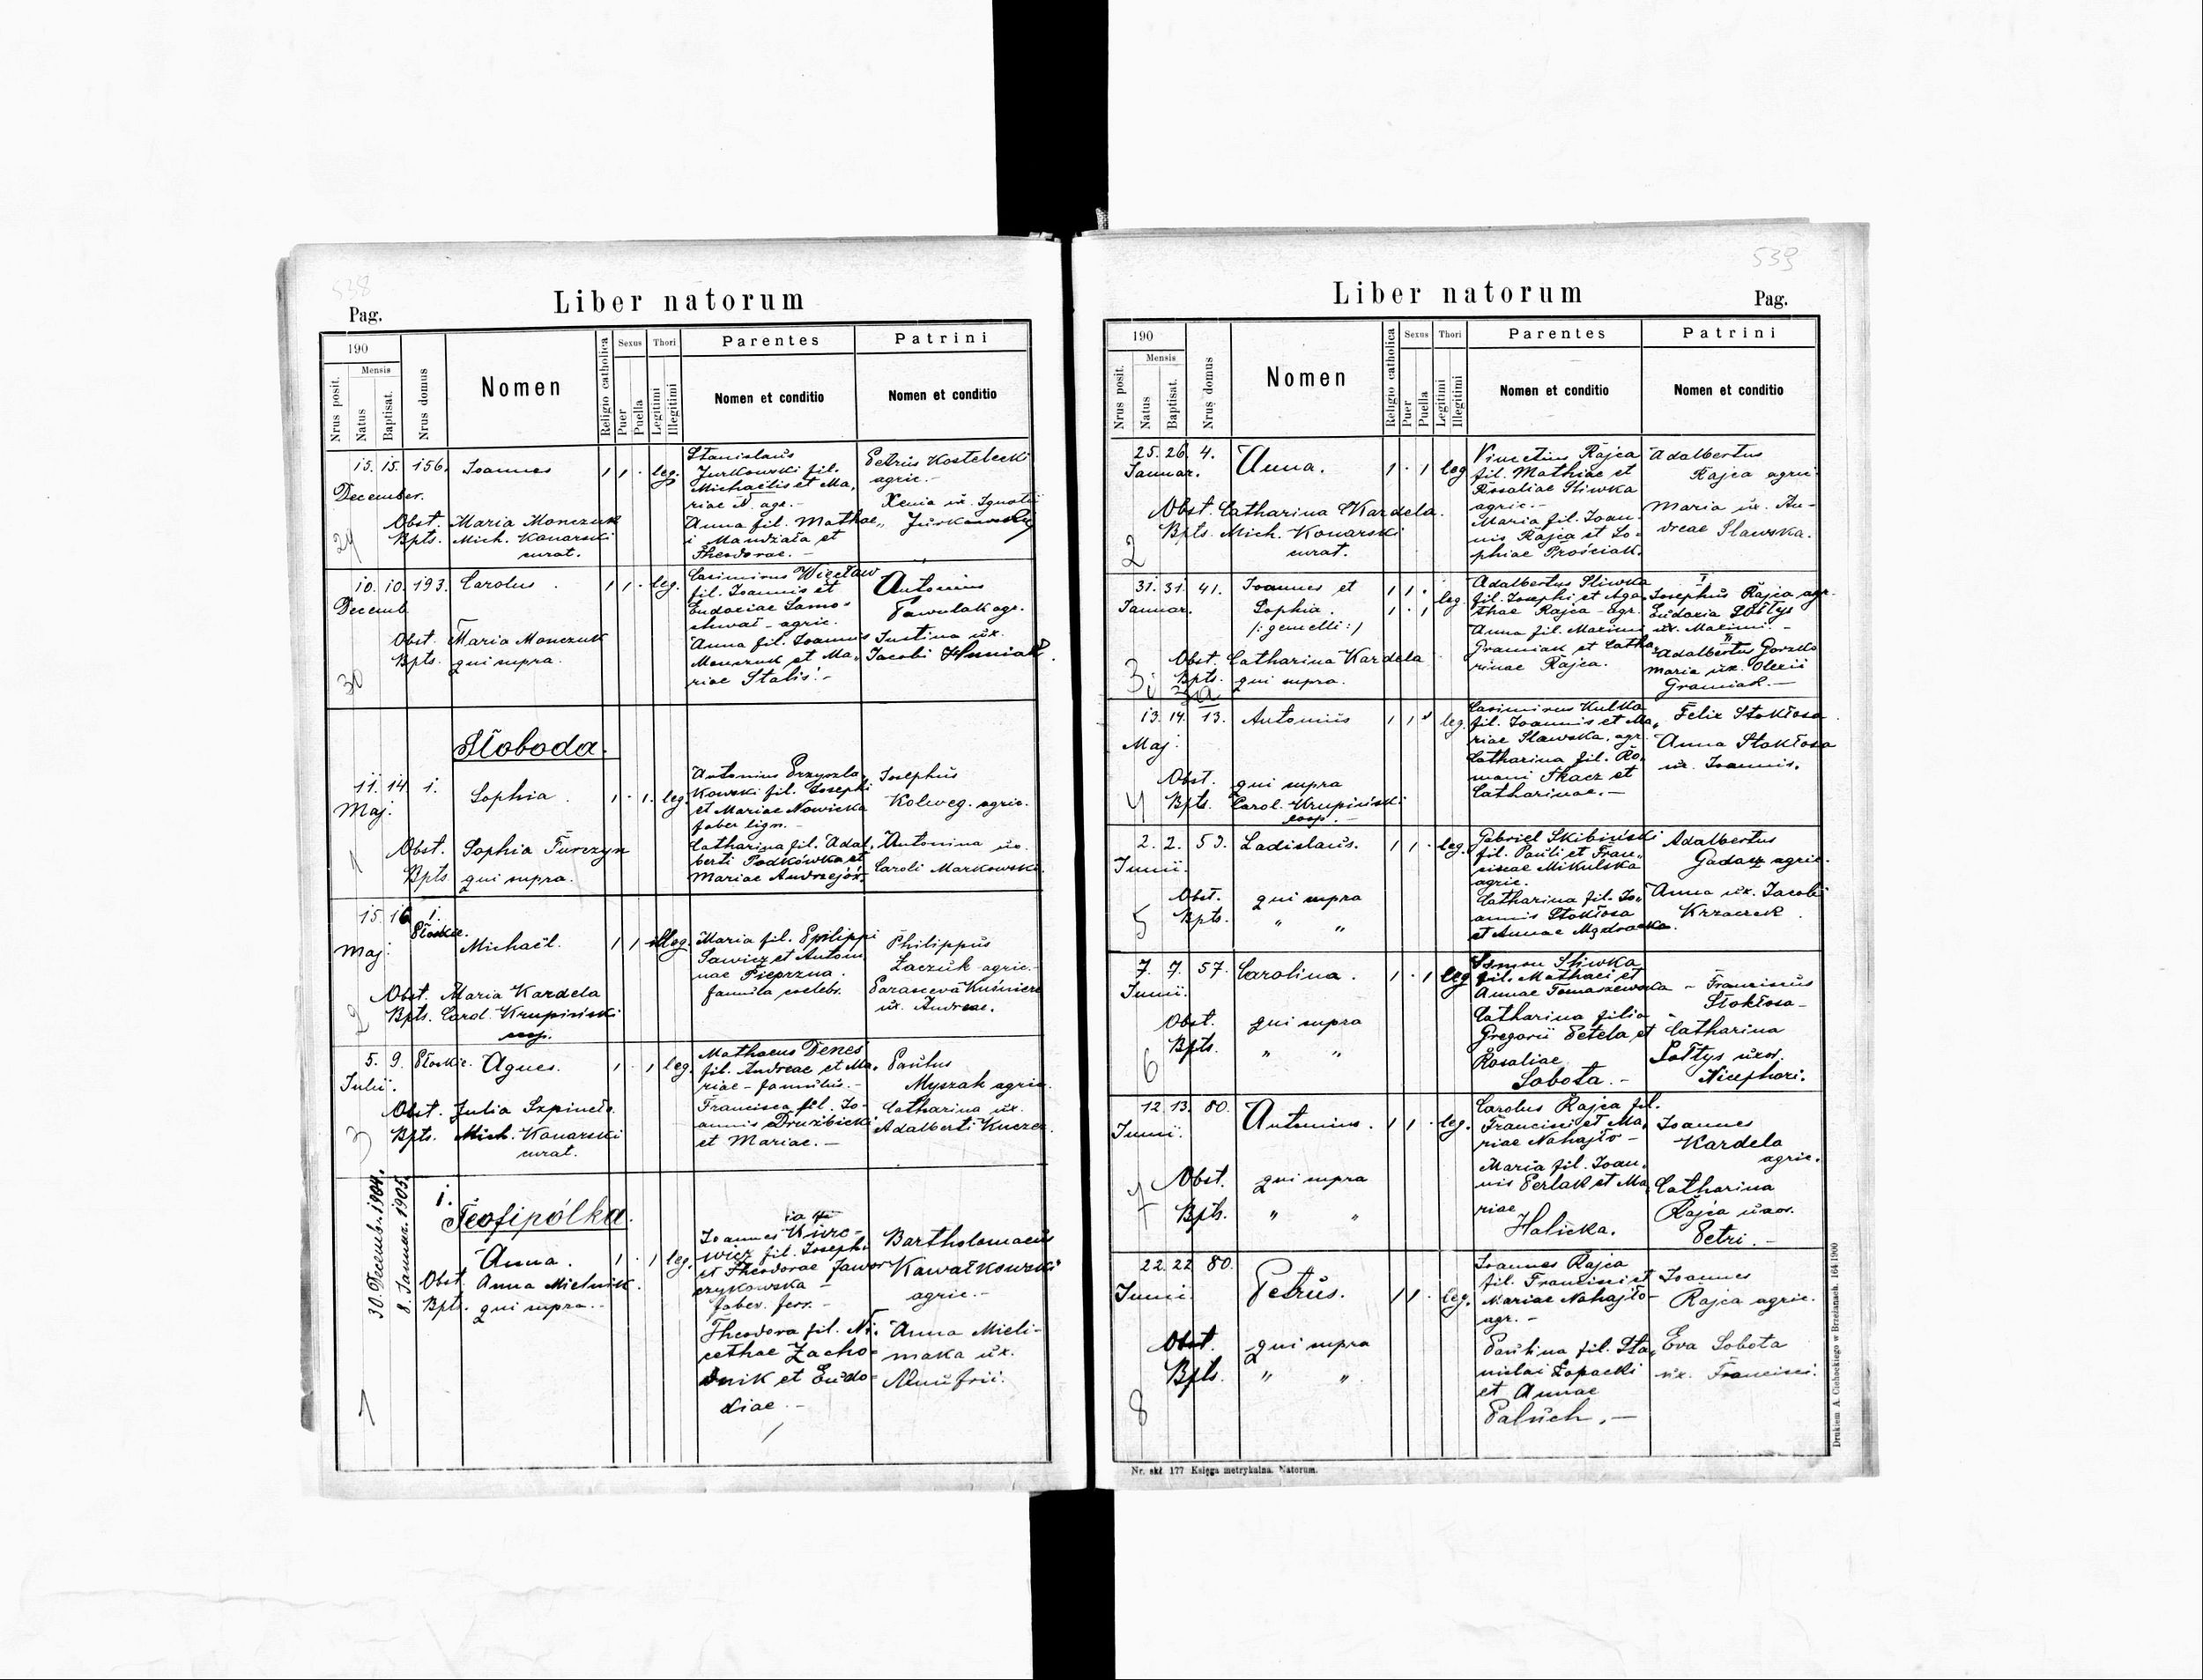 538
Liber natorum
Pag.
190
Mensis
Nrus posit.
Natus
Baptisat.
Nrus domus
Nomen
Religio catholica
Sexus
Puer
Puella
Thori
Legitimi
Illegitimi
Parentes
Nomen et conditio
Patrini
Nomen et conditio
15. 15. 156. Joannes 1 1 · leg.
December.
Obst. Maria Monczuk
Bpts. Mich. Konarski
curat.
29
Stanislaus
Jurkowski fil.
Michaelis et Ma,
riae N. agr. -
Anna fil. Mathae
i Mandziała et
Theodorae. -
Petrus Kostelecki
agric. -
Xenia ux. Ignatii
Jurkowski
10. 10. 193. Carolus 1 1 · leg.
Decemb
Obst. Maria Monczuk
Bpts. qui supra.
30
Casimirus Więcław
fil. Joannis et
Eudociae Samo-
chwał - agric.
Anna fil. Joannis
Monczuk et Ma,
riae Stalis. -
Antonius
Pawulak agr.
Justina ux.
Jacobi Humiak.
Słoboda.
11. 14. 1. Sophia. 1 · 1. leg.
Maj.
Obst. Sophia Turczyn
Bpts. qui supra.
1
Antonius Przyszla,
kowski fil. Josephi
et Mariae Nowicka
faber lign. -
Catharina fil. Adal,
berti Podkówka et
Mariae Andrzejów.
Josephus
Kolweg. agric.
Antonina ux.
Caroli Markowski.
15. 16 1.
Płoskie.
Maj. Michaël. 1 1 illeg.
Obst. Maria Kardela
Bpts. Carol. Krupiński
coop.
2
Maria fil. Philippi
Sawicz et Anton
nae Pieprzna.
famula coelebs.
Philippus
Zaczuk agric. -
Parasceva Kuśnierz
ux. Andreae.
5. 9. Płoskie. Agnes. 1 · 1 leg.
Julii.
Obst. Julia Szpineta.
Bpts. Mich. Konarski
curat.
3
Mathaeus Denes
fil. Andreae et Ma,
riae - famulus. -
Francisca fil. Jo-
annis Drużbicki
et Mariae. -
Paulus
Myszak agric.
Catharina ux.
Adalberti Kuczer.
30. Decemb. 1904.
8. Januar. 1905.
1.
Teofipólka.
Anna. 1 · 1 leg.
Obst. Anna Mielnik.
Bpt. qui supra. -
1
Joannes Kiiro-
wicz fil. Josephi
et Theodorae Jawor
czykowska -
faber. ferr. -
Theodora fil. Ni,
cethae Zacho-
dnik et Eudo-
xiae. -
Bartholomaeus
Kawałkowski
agric. -
Anna Mieli-
maka ux.
Onufrii.
539
Liber natorum
Pag.
190
Mensis
Nrus posit.
Natus
Baptisat.
Nrus domus
Nomen
Religio catholica
Sexus
Puer
Puella
Thori
Legitimi
Illegitimi
Parentes
Nomen et conditio
Patrini
Nomen et conditio
25. 26. 4. Anna. 1 · 1 leg
Januar.
Obst. Catharina Kardela.
Bpts. Mich. Konarski
curat.
2
Vincetius Rajca
fil. Mathiae et
Rosaliae Sliwka
agric. -
Maria fil. Joan-
nis Rajca et So-
phiae Prościak.
Adalbertus
Rajca agric.
Maria ux. An-
dreae Slawska.
31. 31. 41. Joannes et 1 1 ·
Januar. Sophia. 1 · 1 leg.
/: gemelli :/
Obst. Catharina Kardela
Bpts. qui supra.
3 i 3a
Adalbertus Sliwka
fil. Josephi et Aga,
thae Rajca - agr.
Anna fil. Maximi
Gramiak et Catha,
rinae Rajca.
I
Josephus Rajca agr.
Eudoxia Sołtys
ux. Maximi. -
II
Adalbertus Gorzko
Maria ux. Olexii
Gramiak. -
13. 14. 13. Antonius 1 1 · leg.
Maj.
Obst. qui supra
Bpts. Carol. Krupiński
coop. -
4
Casimirus Kulka
fil. Joannis et Ma,
riae Slawska, agr.
Catharina fil. Ro,
mani Tkacz et
Catharinae. -
Felix Stokłosa
Anna Stokłosa
ux. Joannis.
2. 2. 53. Ladislaus. 1 1 · leg.
Junii.
Obst. qui supra
Bpts. " "
5
Gabriel Skibiński
fil. Pauli et Fran,
ciscae Mikulska
agric.
Catharina fil. Jo,
annis Stokłosa
et Annae Mądracka.
Adalbertus
Gadasz agric.
Anna ux. Jacobi
Krzaczek
7. 7. 57. Carolina. 1 · 1 leg
Junii.
Obst. qui supra
Bpts. " "
6
Simon Sliwka
fil. Mathaei et
Annae Tomaszewska
Catharina filia
Gregorii Petela et
Rosaliae
Sobota. -
Franciscus
Stokłosa -
Catharina
Sołtys uxor.
Nicephori.
12. 13. 80. Antonius. 1 1 · leg.
Junii.
Obst. qui supra
Bpts. " "
7
Carolus Rajca fil.
Francisci et Ma,
riae Nahajło -
Maria fil. Joan,
nis Perlak et Ma,
riae
Halicka.
Joannes
Kardela
agric.
Catharina
Rajca uxor.
Petri. -
22. 22. 80. Petrus. 1 1 · leg.
Junii.
Obst. qui supra
Bpts. " "
8
Joannes Rajca
fil. Francisci et
Mariae Nahajło -
agr. -
Paulina fil. Sta,
nislai Łopacki
et Annae
Paluch. -
Joannes
Rajca agric.
Eva Sobota
ux. Francisci.
Nr. skł. 177 Księga metrykalna. Natorum.
Drukiem A. Ciehockiego w Brzeżanach. 164/1900